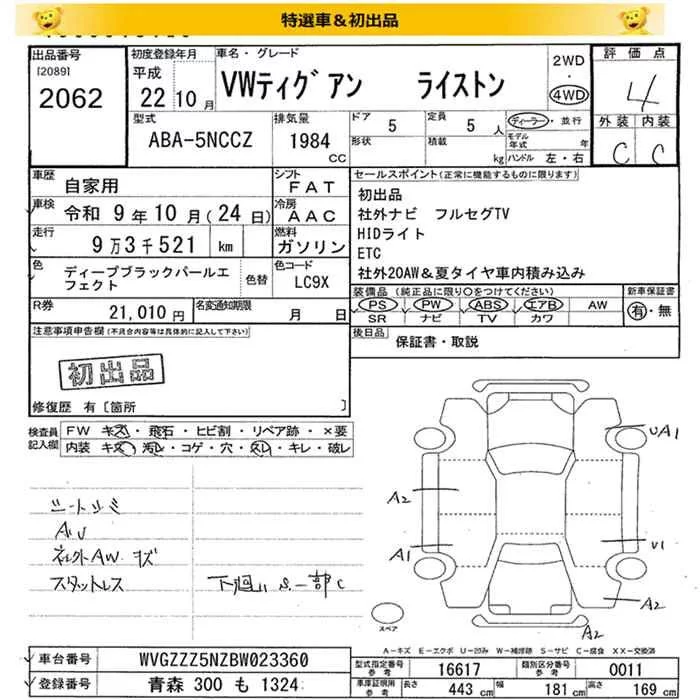 特選車＆初出品
出品番号
[2089]
2062
初度登録年月
平成
22 10 月
車名・グレード
VWティグアン ライストン
2WD
・
4WD
評価点
4
外装 内装
C C
型式
ABA-5NCCZ
排気量
1984
CC
ドア
5
定員
5 人
形状
積載
kg
ディーラー・並行
モデル年式 年
ハンドル 左・右
車歴
自家用
シフト
FAT
車検
令和 9 年 10 月 ( 24 日)
冷房
AAC
走行
9 万 3 千 521 km
燃料
ガソリン
色
ディープブラックパールエフェクト
色替
色コード
LC9X
R券
21,010 円
名変通知期限
月 日
セールスポイント(正常に機能するものに限ります)
初出品
社外ナビ フルセグTV
HIDライト
ETC
社外20AW＆夏タイヤ車内積み込み
装備品(純正品に限り○をつけてください)
PS PW ABS エアB AW
SR ナビ TV カワ
新車保証書
有・無
後日品
保証書・取説
注意事項申告欄(不具合内容等は具体的に記入して下さい)
初出品
修復歴 有 [箇所 ]
検査員記入欄
FW キズ・飛石・ヒビ割・リペア跡・×要
内装 キズ・汚レ・コゲ・穴・スレ・キレ・破レ
シートシミ
AU
社外AW キズ
スタットレス
下廻り S.一部C
UA1
A2
A1
U1
A2
A2
スペア
A－キズ E－エクボ U－凹み W－補修跡 S－サビ C－腐食 XX－交換済
車台番号
WVGZZZ5NZBW023360
登録番号
青森 300 も 1324
型式指定番号
参考
16617
類別区分番号
参考
0011
車庫証明用
参考
長さ
443 cm
幅
181 cm
高さ
169 cm